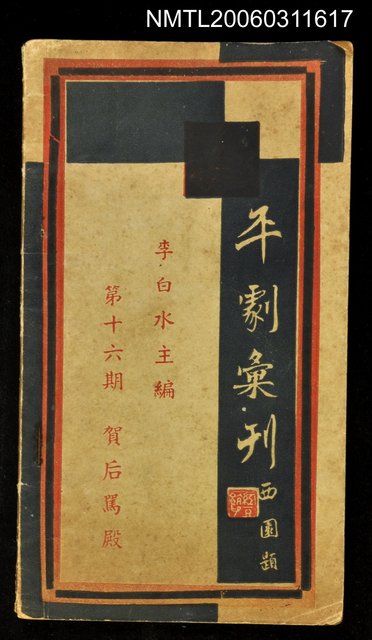 NMTL20060311617
平劇彙刊
西園題
李白水主編
第十六期 賀后罵殿